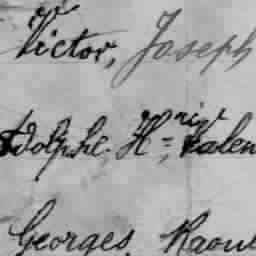 Victor, Joseph
Adolphe. H=, Valen
Georges, Raoul